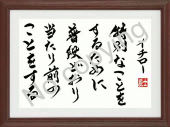 イチロー
特別なことを
するために
普段どおり
当たり前の
ことをする